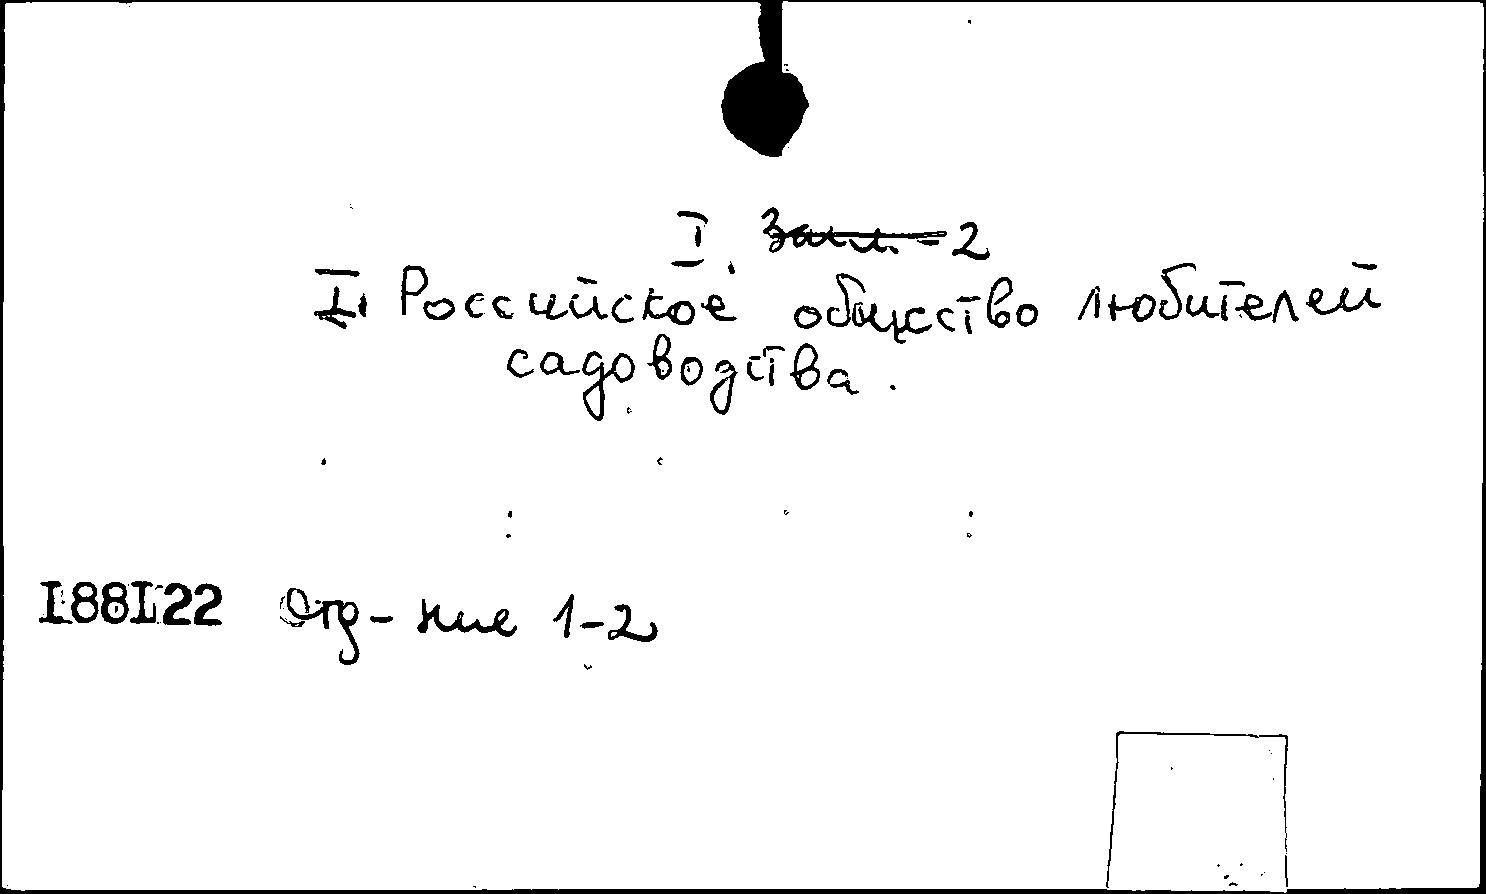 I. Загл. - 2
I. Российское общество любителей
садоводства.
I88I22 Отд-ние 1-2